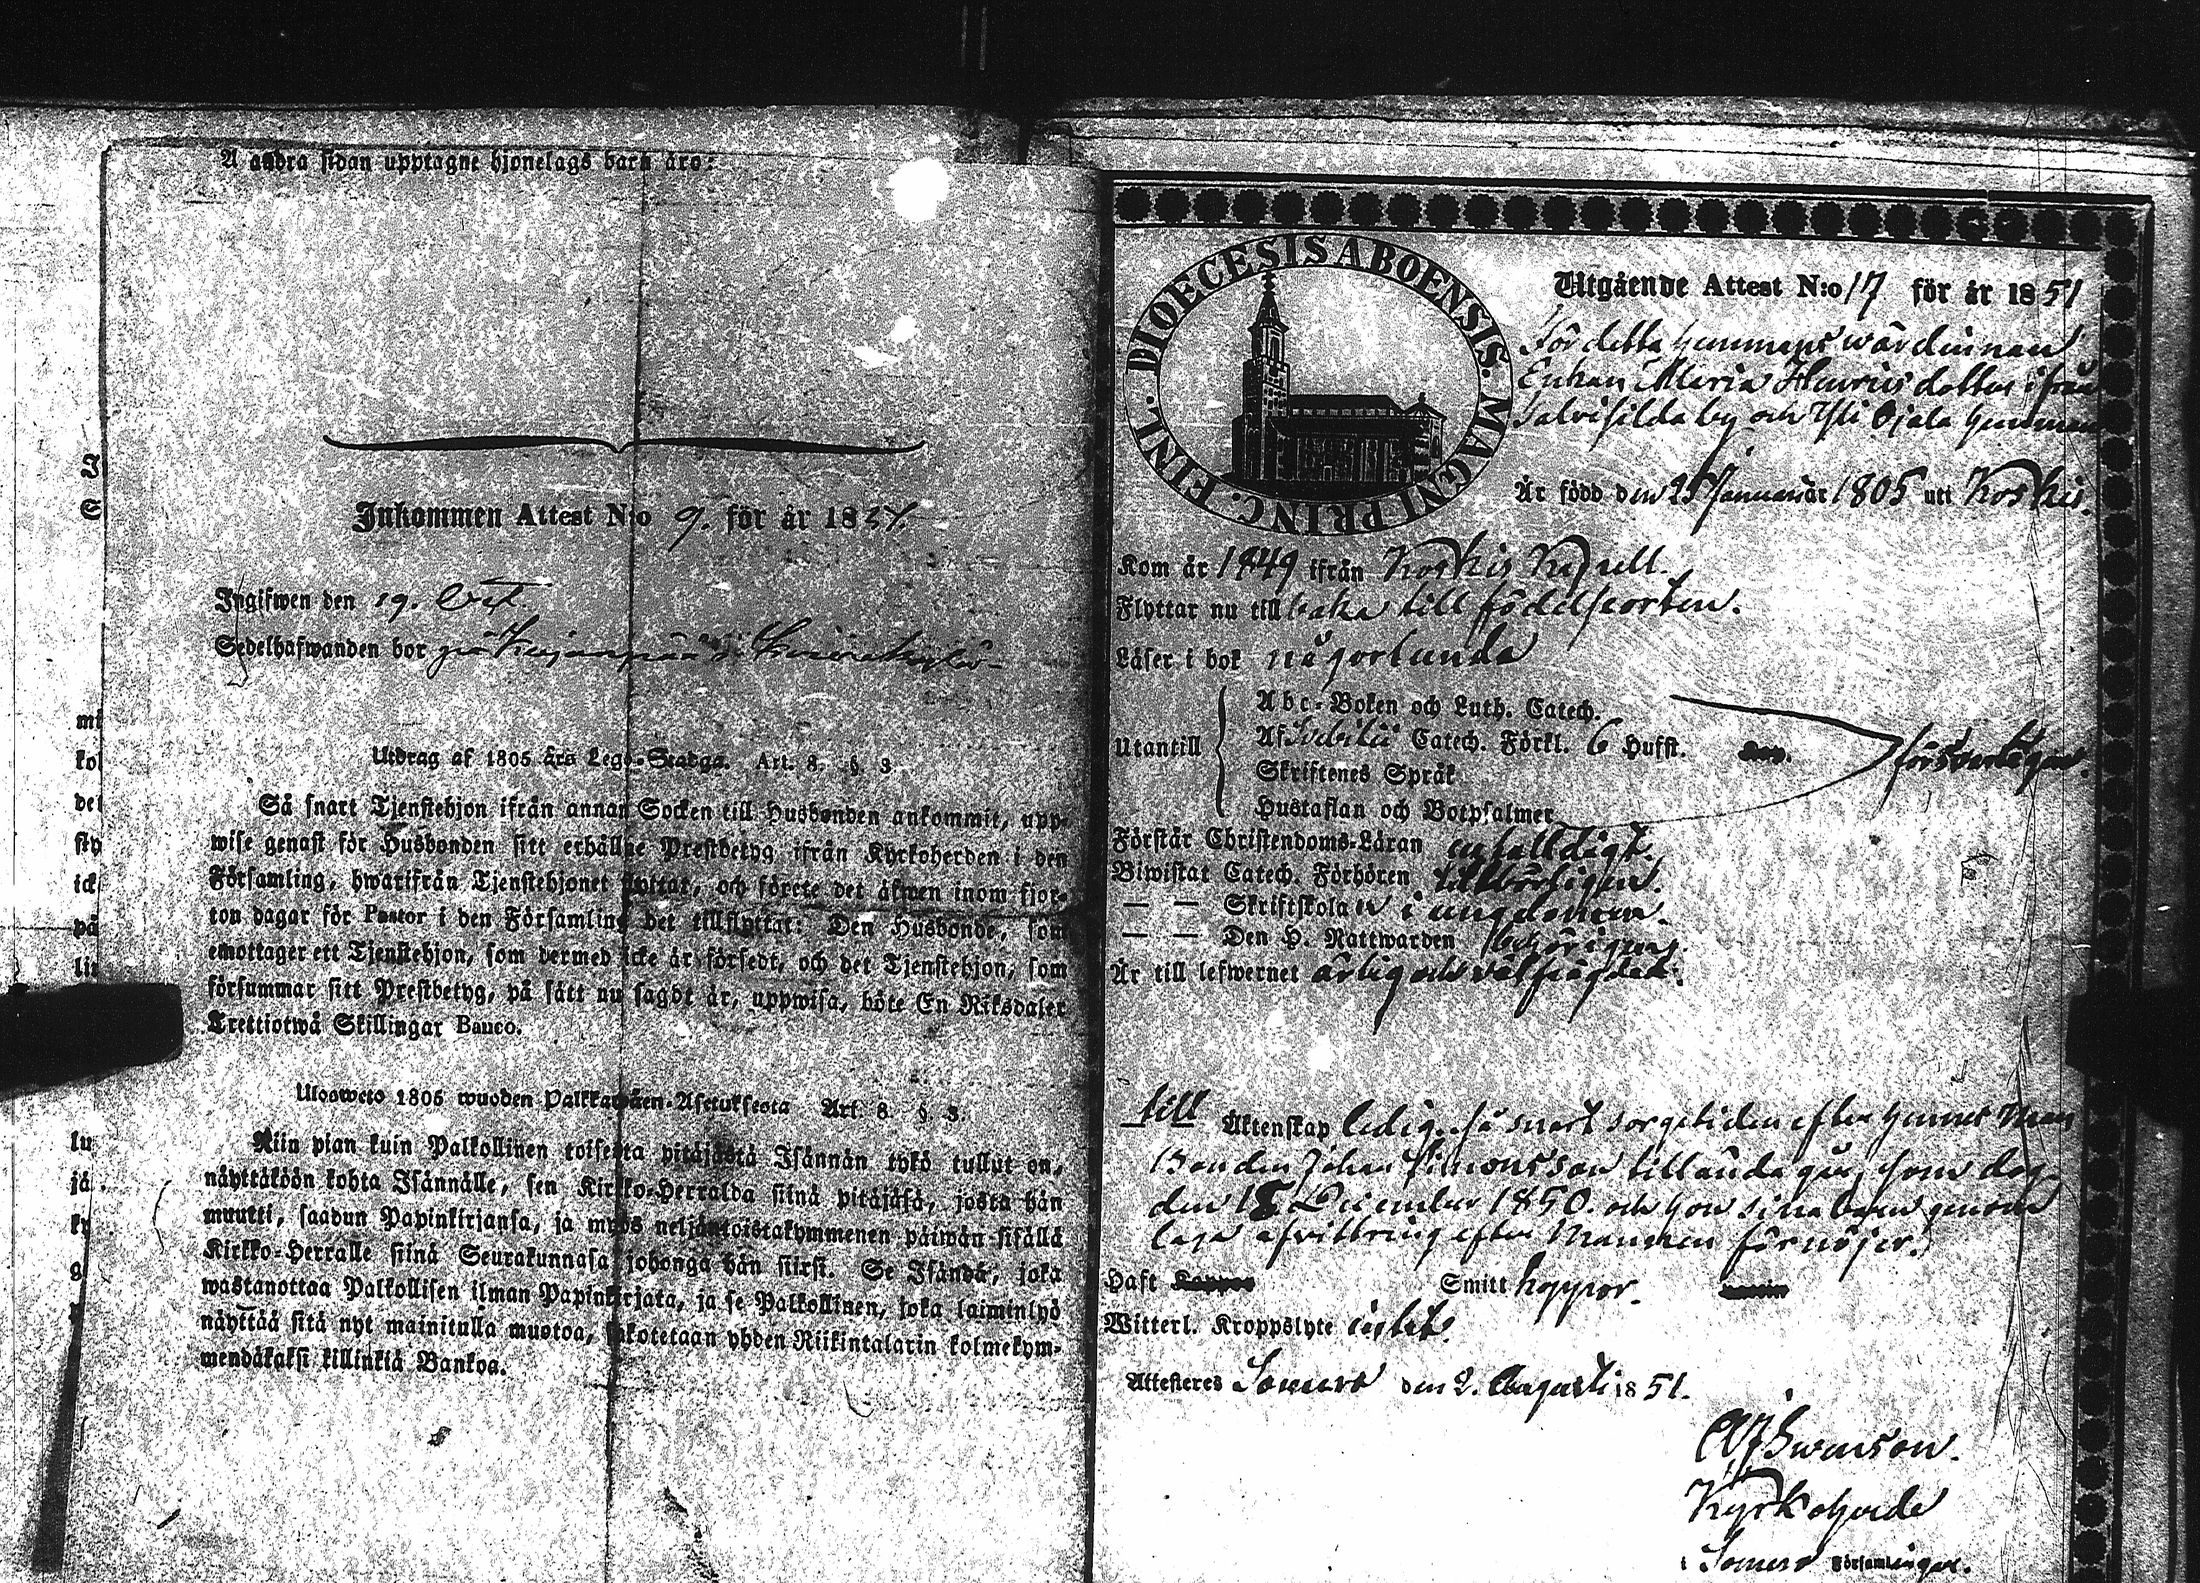 Å andra sidan upptagne hjonelags barn äro:
Inkommen Attest N:o 9. för år 18
Ingifwen den 19. Oct.
Sedelhafwanden bor på
Utdrag af 1805 års Lego-Stadga. Art. 8. § 3.
Så snart Tjenstehjon ifrån annan Socken till Husbonden ankommit, upp-
wise genast för Husbonden sitt erhållne Prestbetyg ifrån Kyrkoherden i den
Församling, hwarifrån Tjenstehjonet flyttat, och förete det äfwen inom fjor-
ton dagar för Pastor i den Församling det tillflyttat: Den Husbonde, som
emottager ett Tjenstehjon, som dermed icke är försedt, och det Tjenstehjon, som
försummar sitt Prestbetyg, på sätt nu sagdt är, uppwisa, böte En Riksdaler
Trettiotwå Skillingar Banco.
Ulosweto 1805 wuoden Palkkawäen-Asetuksesta Art. 8 § 3.
Niin pian kuin Palkollinen toisesta pitäjästä Isännän tykö tullut on,
näyttäköön kohta Isännälle, sen Kirkko-Herralda siinä pitäjäsä, josta hän
muutti, saadun Papinkirjansa, ja myös neljäntoistakymmenen päiwän sisällä
Kirkko-Herralle siinä Seurakunnasa johonga hän siirsi. Se Isändä, joka
wastanottaa Palkollisen ilman Papinkirjata, ja se Palkollinen, joka laiminlyö
näyttää sitä nyt mainitulla muotoa, sakotetaan yhden Riikintalarin kolmekym-
mendäkaksi killinkiä Bankoa.
DIOECESIS ABOENSIS. MAGNI PRINC. FINL.
Utgående Attest N:o 17 för år 1851
För detta hemmans wärdinnan
Enkan Maria Henricsdotter ifrån
by och Yli Ojala hemman
Är född den 25 Januari år 1805 uti Koskis.
Kom år 1849 ifrån Koskis Kapell.
Flyttar nu tillbaka till födelseorten.
Läser i bok någorlunda
Utantill
Abc-Boken och Luth. Catech.
Af Svebilii Catech. Förkl. 6 Hufst.
Skriftenes Språk
Hustaflan och Botpsalmer
försvarligen.
Förstår Christendoms-Läran enfalldigt.
Biwistat Catech. Förhören tillbörligen.
— — Skriftskolan i ungdomen.
— — Den H. Nattwarden behörigen.
Är till lefwernet ärlig och välfrägdad.
till Äktenskap ledig, så snart sorgetiden efter hennes Man
Bonden Johan Simonsson tilländagår, som dog
den December 1850. och hon sina barn genom
laga afvittring efter Mannen förnöjer.
Haft Smitt koppor.
Witterl. Kroppslyte intet.
Attesteres Somero den 2. Augusti 1851.
Swanson.
Kyrkoherde
i Somero Församlingar.